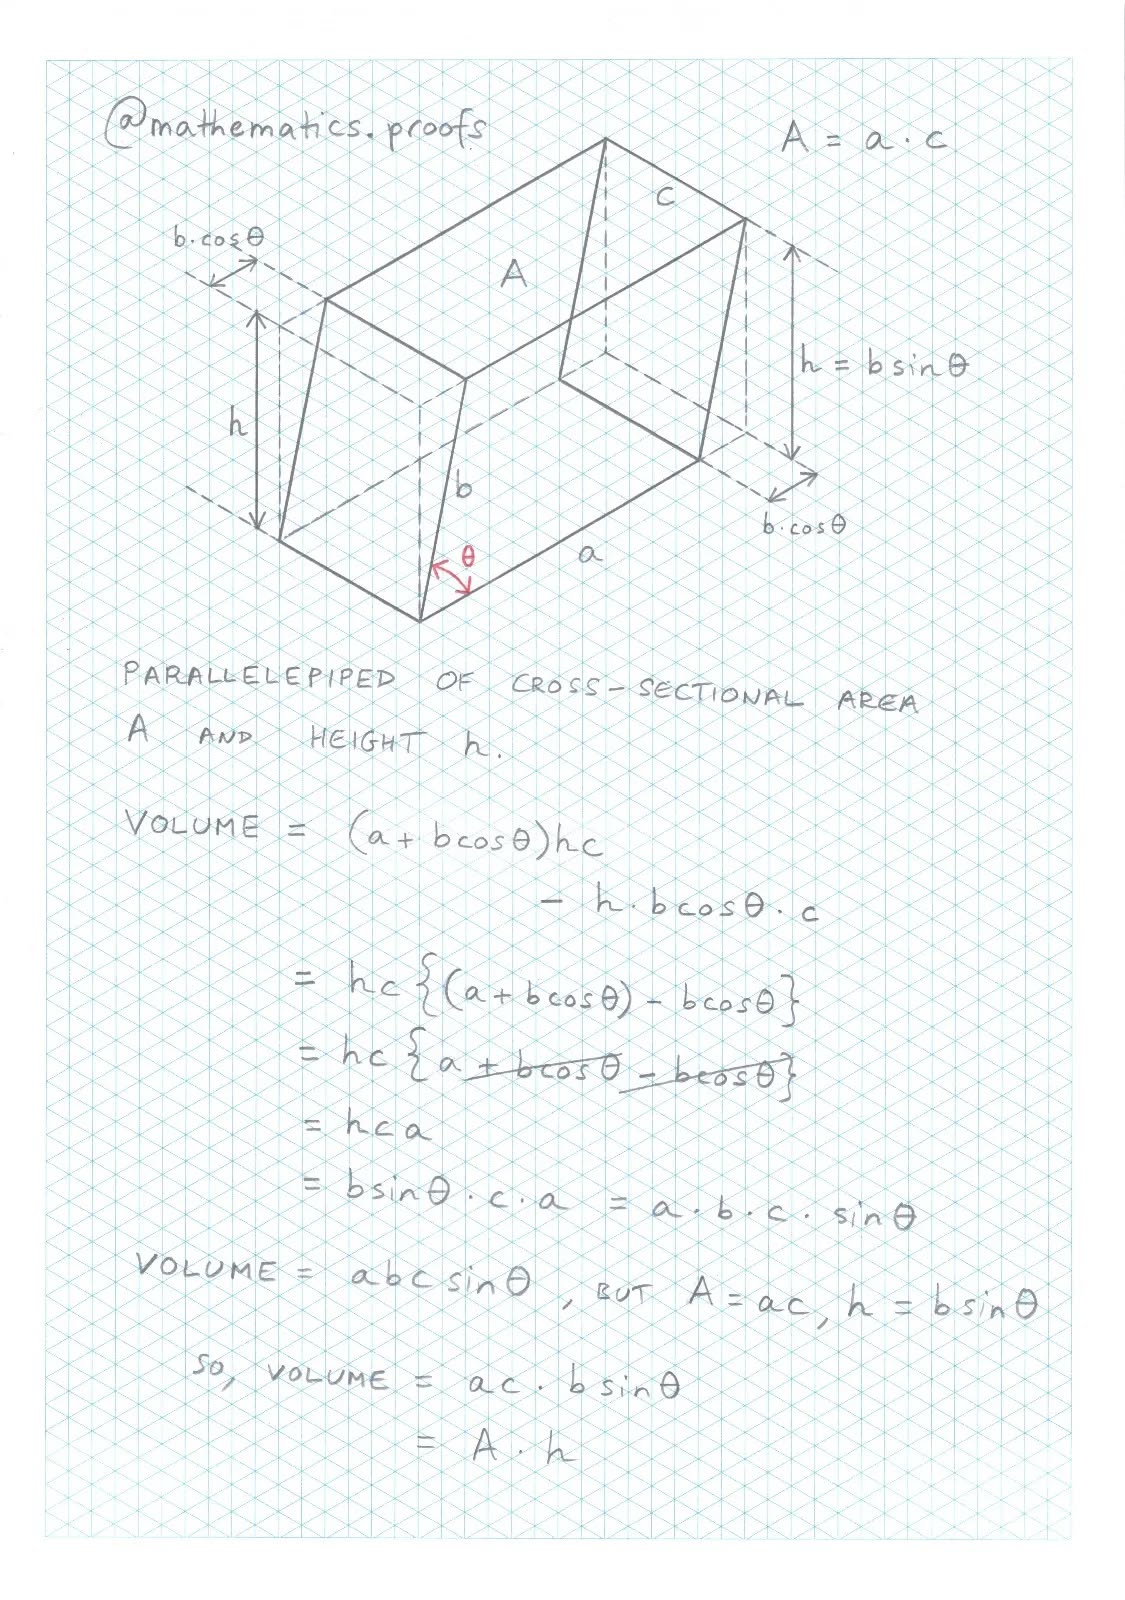 @mathematics.proofs
A = a · c
b·cosθ
c
A
h
h = b sinθ
b
θ
a
b·cosθ
PARALLELEPIPED OF CROSS-SECTIONAL AREA
A AND HEIGHT h.
VOLUME = (a + bcosθ)hc
- h·bcosθ·c
= hc{(a + bcosθ) - bcosθ}
= hc{a + bcosθ - bcosθ}
= hca
= bsinθ·c·a = a·b·c·sinθ
VOLUME = abcsinθ, BUT A = ac, h = bsinθ
SO, VOLUME = ac·bsinθ
= A·h